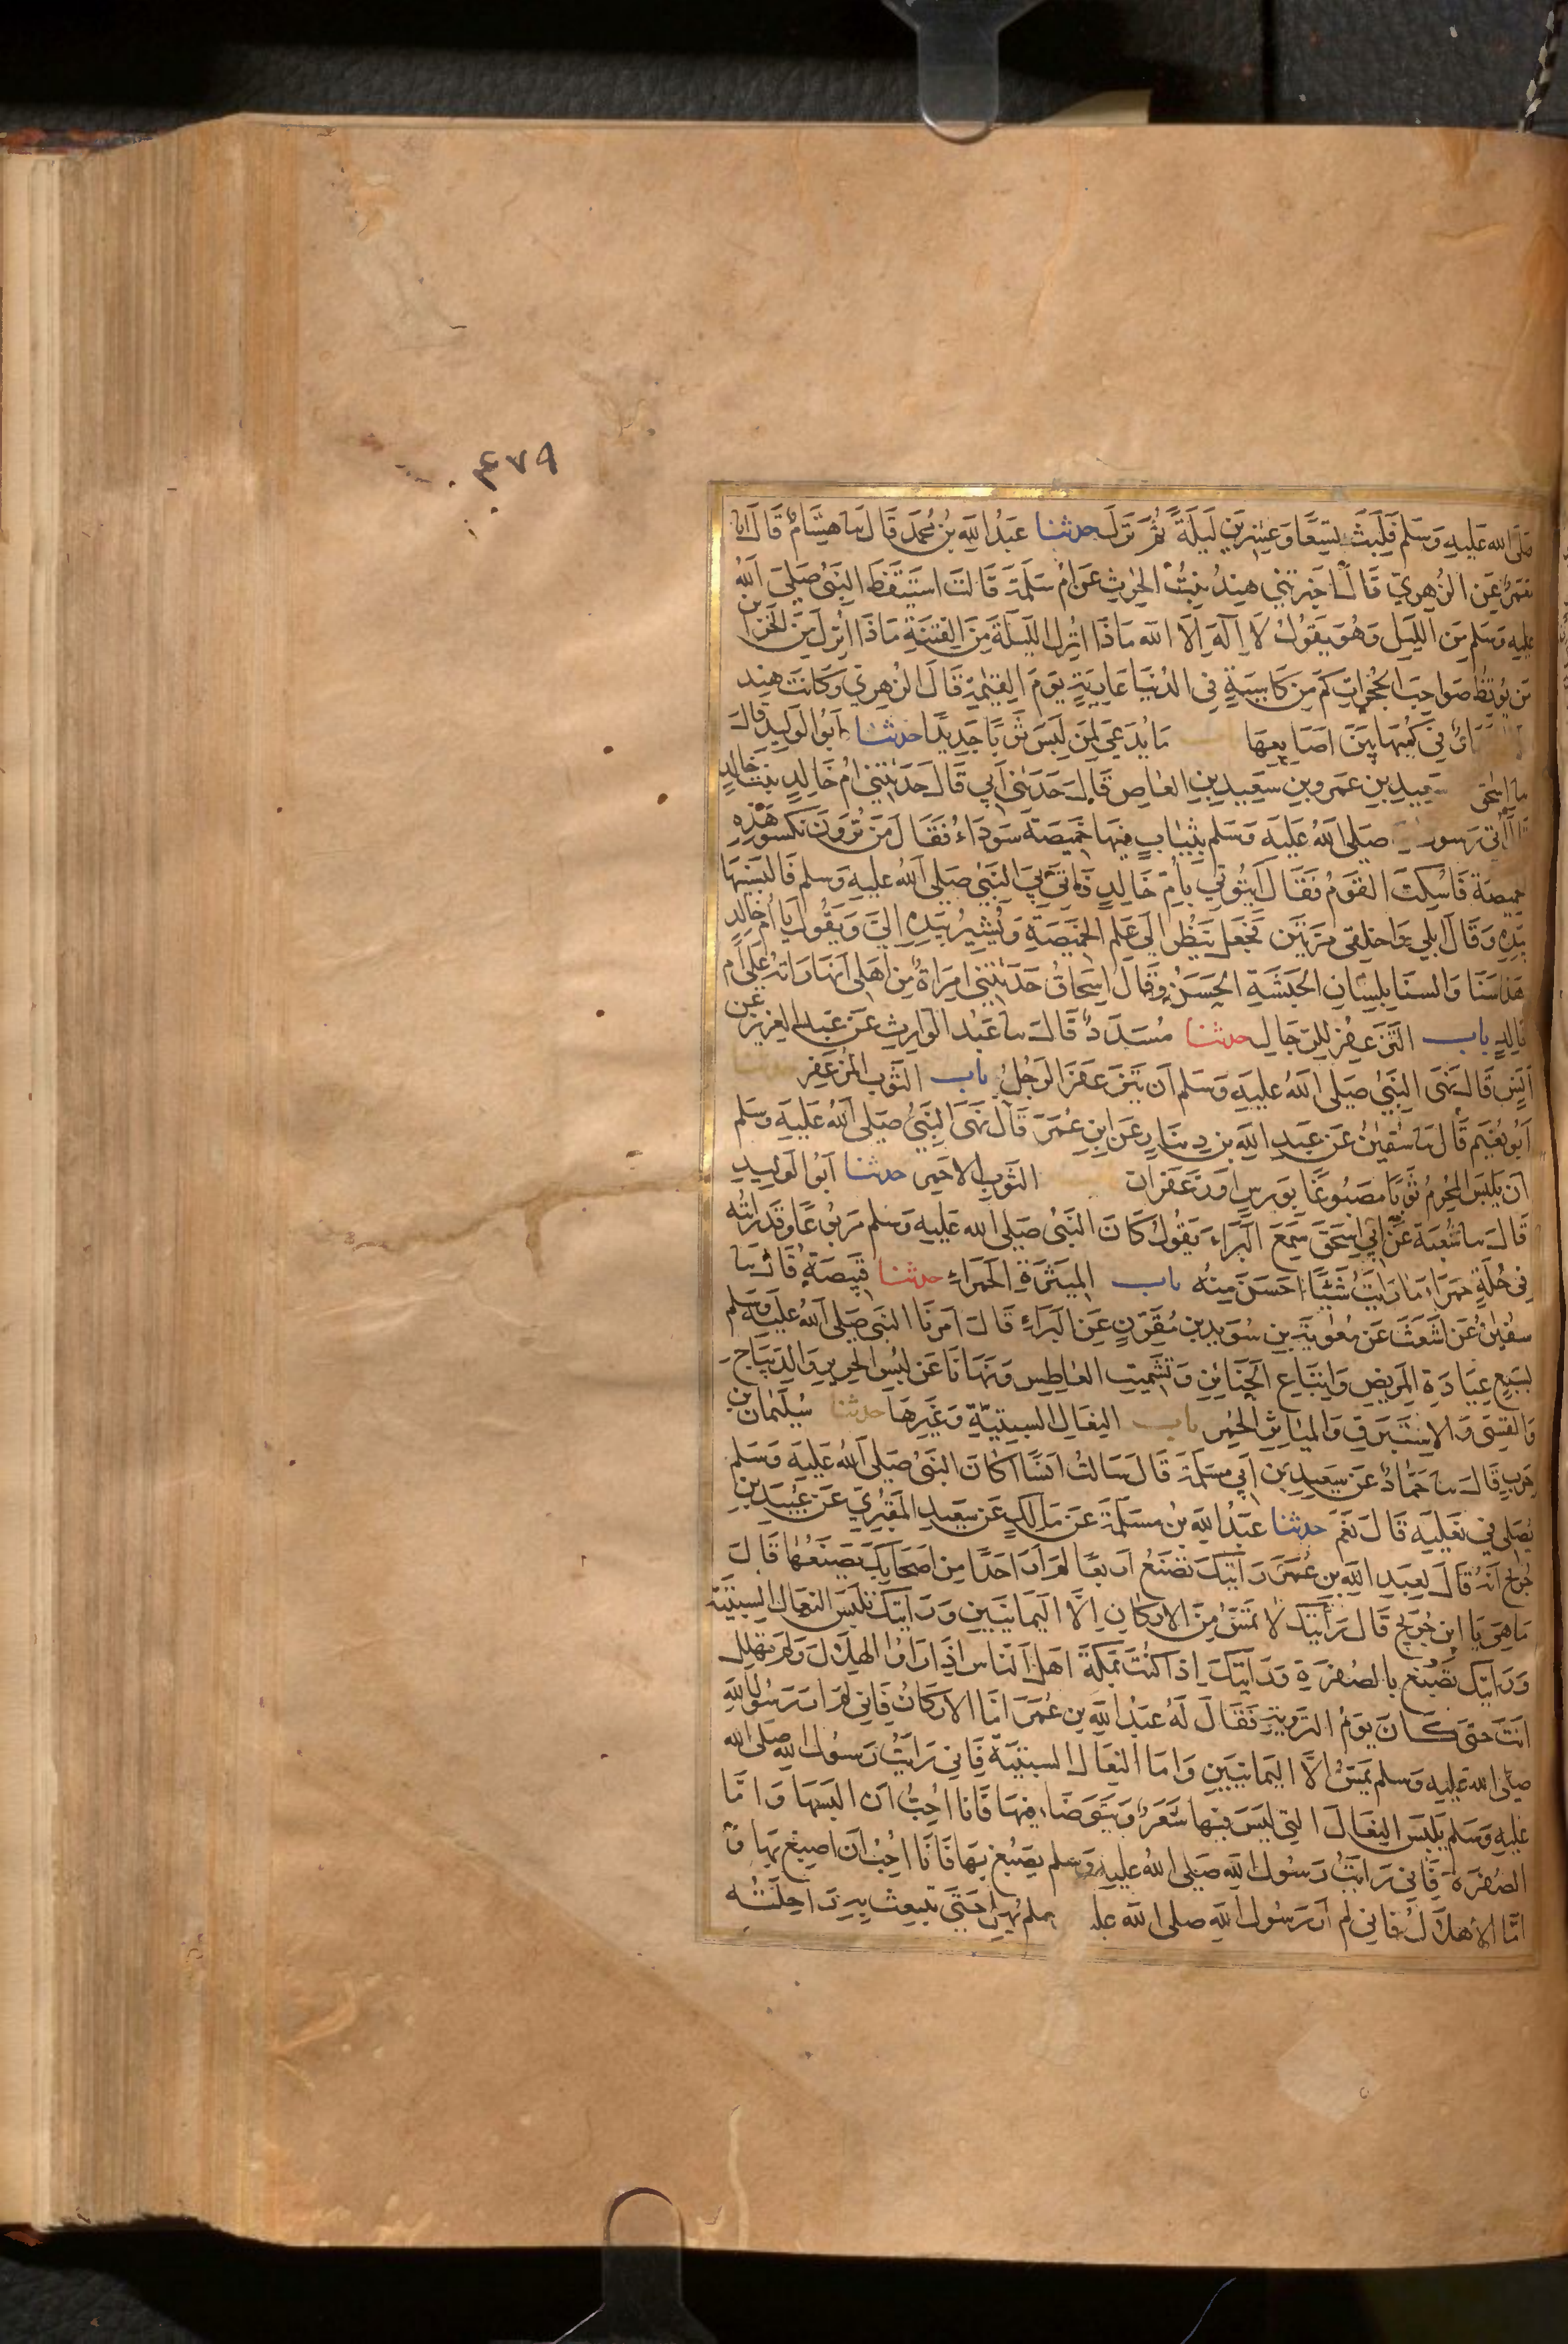 ٤٧٩
صلى الله عليه وسلم فلبث تسعا وعشرين ليلة ثم نزل حدثنا عبد الله بن محمد قال نا هشام قال انا
معمر عن الزهري قال اخبرتني هند بنت الحرث عن ام سلمة قالت استيقظ النبي صلى الله
عليه وسلم من الليل وهو يقول لا اله الا الله ماذا انزل الليلة من الفتنة ماذا انزل من الخزاين
من يوقظ صواحب الحجرات كم من كاسية في الدنيا عارية يوم القيمة قال الزهري وكانت هند
في كميها بين اصابعها ما يدعى لمن لبس ثوبا جديدا حدثنا ابو الوليد قال
نا اسحق سعيد بن عمرو بن سعيد بن العاص قال حدثني ابي قال حدثتني ام خالد بنت خالد
اتي رسول صلى الله عليه وسلم بثياب فيها خميصة سوداء فقال من ترون نكسو هذه
خميصة فاسكت القوم فقال ايتوني بام خالد فاتي بي النبي صلى الله عليه وسلم فالبسنيها
بيده وقال ابلي واخلقي مرتين فجعل ينظر الى علم الخميصة ويشير بيده الي ويقول يا ام خالد
هذا سنا والسنا بلسان الحبشة الحسن وقال اسحاق حدثتني امراة من اهلي انها راته على ام
خالد باب التزعفر للرجال حدثنا مسدد قال نا عبد الوارث عن عبد العزيز عن
انس قال نهى النبي صلى الله عليه وسلم ان يتزعفر الرجل باب الثوب المزعفر حدثنا
ابو نعيم قال نا سفين عن عبد الله بن دينار عن ابن عمر قال نهى النبي صلى الله عليه وسلم
ان يلبس المحرم ثوبا مصبوغا بورس او زعفران الثوب الاحمر حدثنا ابو الوليد
قال نا شعبة عن ابي اسحق سمع البراء يقول كان النبي صلى الله عليه وسلم مربوعا وقد رايته
في حلة حمراء ما رايت شيئا احسن منه باب الميثرة الحمراء حدثنا قبيصة قال نا
سفين عن اشعث عن معوية بن سويد بن مقرن عن البراء قال امرنا النبي صلى الله عليه وسلم
بسبع عيادة المريض واتباع الجنائز وتشميت العاطس ونهانا عن لبس الحرير والديباج
والقسي والاستبرق والمياثر الحمر باب النعال السبتية وغيرها حدثنا سليمان بن
حرب قال نا حماد عن سعيد بن ابي مسلمة قال سالت انسا اكان النبي صلى الله عليه وسلم
يصلي في نعليه قال نعم حدثنا عبد الله بن مسلمة عن مالك عن سعيد المقبري عن عبيد بن
جريج انه قال لعبد الله بن عمر رايتك تصنع اربعا لم ار احدا من اصحابك يصنعها قال
ما هي يا ابن جريج قال رايتك لا تمس من الاركان الا اليمانيين ورايتك تلبس النعال السبتية
ورايتك تصبغ بالصفرة ورايتك اذا كنت بمكة اهل الناس اذا راوا الهلال ولم تهلل
انت حتى كان يوم التروية فقال له عبد الله بن عمر اما الاركان فاني لم ار رسول الله
صلى الله عليه وسلم يمس الا اليمانيين واما النعال السبتية فاني رايت رسول الله صلى الله
عليه وسلم يلبس النعال التي ليس فيها شعر ويتوضا فيها فانا احب ان البسها واما
الصفرة فاني رايت رسول الله صلى الله عليه وسلم يصبغ بها فانا احب ان اصبغ بها و
اما الاهلال فاني لم ار رسول الله صلى الله عليه سلم يهل حتى تنبعث به راحلته